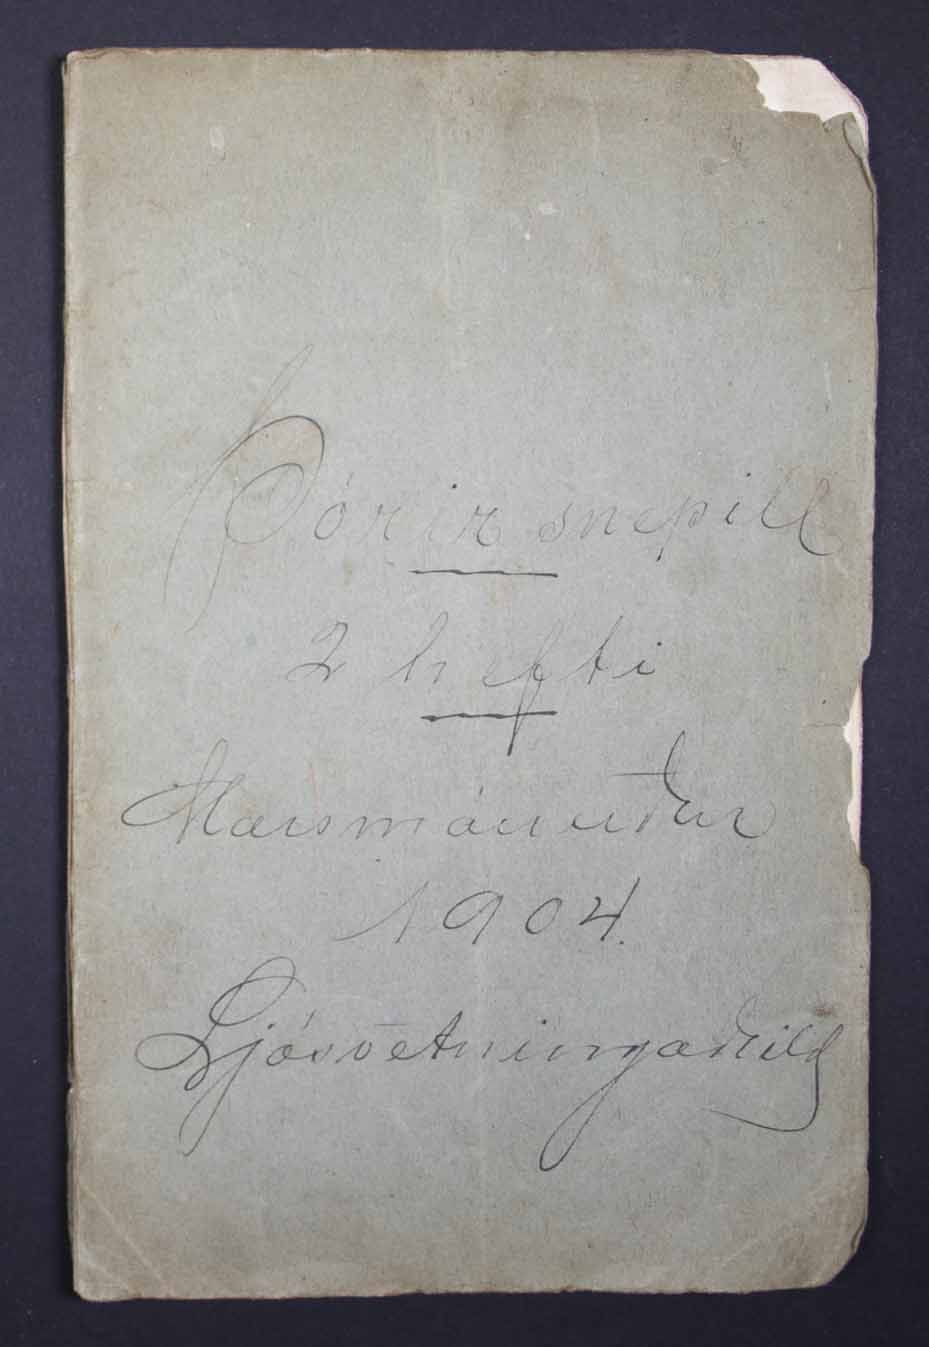 Þórir snepill
2 hefti
Marsmánuður
1904.
Ljósvetningadeild